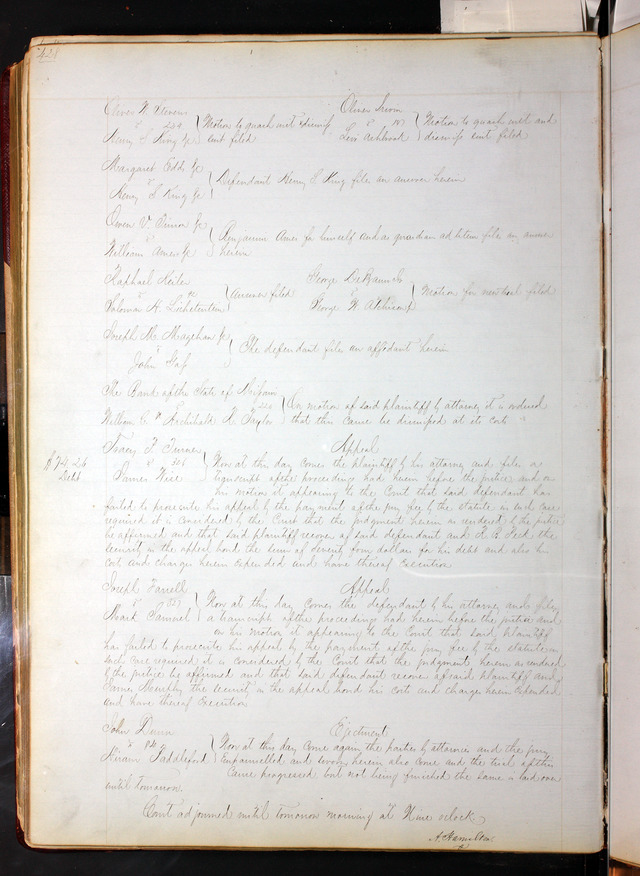 Oliver N. Stevens
vs
Henry S King
Motion to quash writ & dismiss
suit filed
Oliver
vs
Levi Ashbrook
Motion to quash writ and
dismiss suit filed
Margaret
vs
Henry S King &c
Defendant Henry S. King files an answer herein
Owen V. &c
vs
William Ames &c
Benjamin Ames for himself and as guardian ad litem files an answer
herein
Raphael Keiler
vs
Solomon H.
Answer filed
George
vs
George N Atchison
Motion for new trial filed
Joseph Mc Meaghan &c
vs
John Gass
The defendant files an affidavit herein
The Bank of the State of Missouri
vs
William C & Archibald R. Taylor
On motion of said plaintiff by attorney it is ordered
that this cause be dismissed at its cost
$74.24
Debt
Tracy F. Turner
vs
James Wise
Appeal
Now at this day comes the plaintiff by his attorney and files a
transcript of the proceedings had herein before the justice and on
his motion it appearing to the Court that said defendant has
failed to prosecute his appeal by the payment of the jury fee by the statute in such case
required it is considered by the Court that the judgment herein as rendered by the justice
be affirmed and that said plaintiff recover of said defendant and the
security in the appeal bond the sum of seventy four dollars for his debt and also his
cost and charges herein expended and have thereof execution
Joseph Farrell
vs
Mark Sammel
Appeal
Now at this day comes the defendant by his attorney and files
a transcript of the proceedings had herein before the justice and
on his motion it appearing to the Court that said plaintiff
has failed to prosecute his appeal by the payment of the jury fee by the statute in
such case required it is considered by the Court that the judgment herein as rendered
by the justice be affirmed and that said defendant recover of said plaintiff and
James Murphy the security in the appeal bond his cost and charges herein expended
and have thereof execution
John Dunn
vs
Hiram Paddleford
Ejectment
Now at this day come again the parties by attornies and the jury
Empannelled and sworn herein also come and the trial of this
Cause progressed but not being finished the same is laid over
until tomorrow.
Court adjourned until tomorrow morning at Nine oclock
A. Hamilton